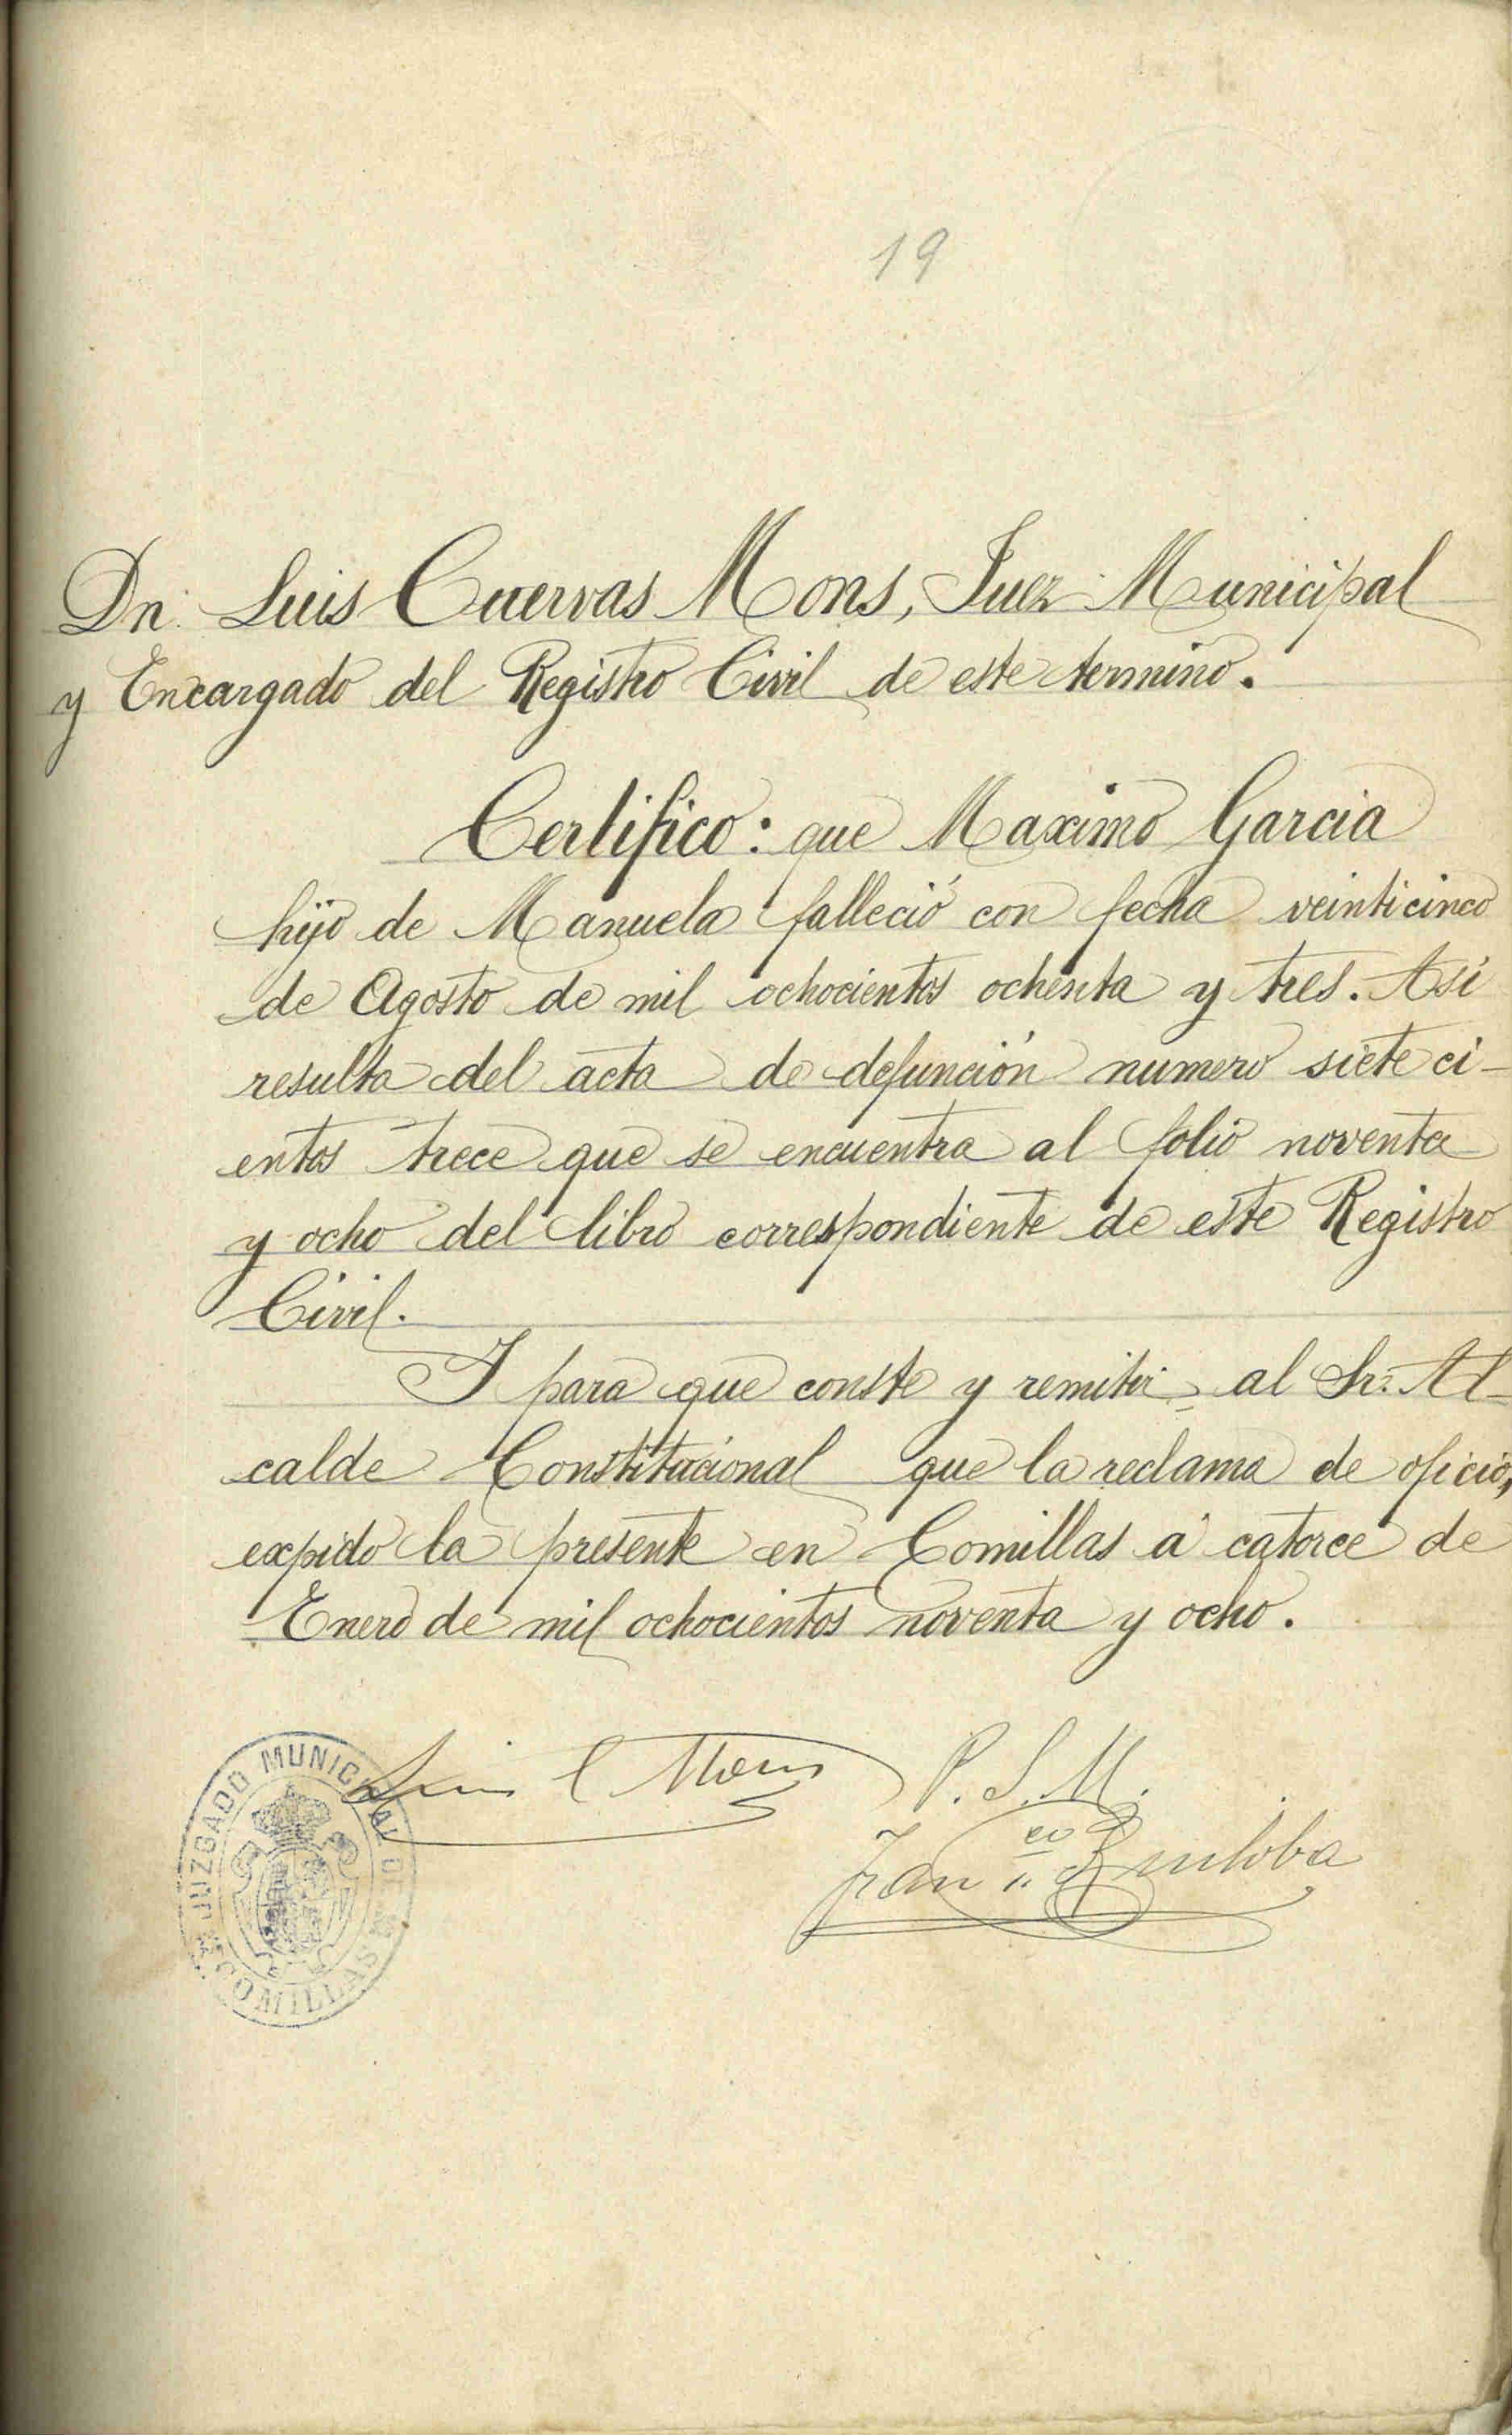 19
Dn. Luis Cuervas Mons, Juez Municipal
y Encargado del Registro Civil de este termino.
Certifico: que Maximo Garcia
hijo de Manuela falleció con fecha veinticinco
de Agosto de mil ochocientos ochenta y tres. Asi
resulta del acta de defunción numero siete ci-
entos trece que se encuentra al folio noventa
y ocho del libro correspondiente de este Registro
Civil.
Y para que conste y remitir al Sr. Al-
calde Constitucional que la reclama de oficio,
expido la presente en Comillas á catorce de
Enero de mil ochocientos noventa y ocho.
Luis C Mons
P. S. M.
Franco
JUZGADO MUNICIPAL DE
COMILLAS